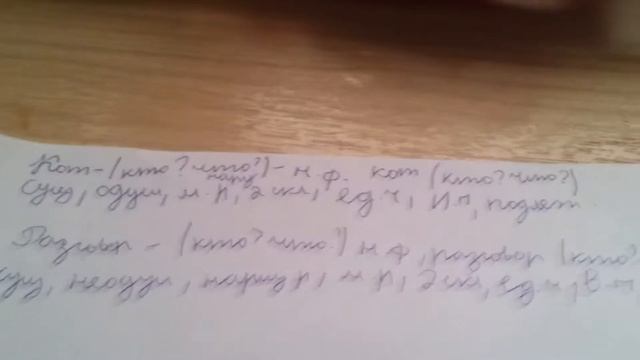 Кот - (кто? что?) - н.ф. кот (кто? что?)
нариц
сущ, одуш, м.р, 2 скл, ед.ч, И.п, подлеж
Разговор - (кто? что?) н.ф, разговор (кто?
сущ, неодуш, нариц, м.р, 2 скл, ед.ч, В.п